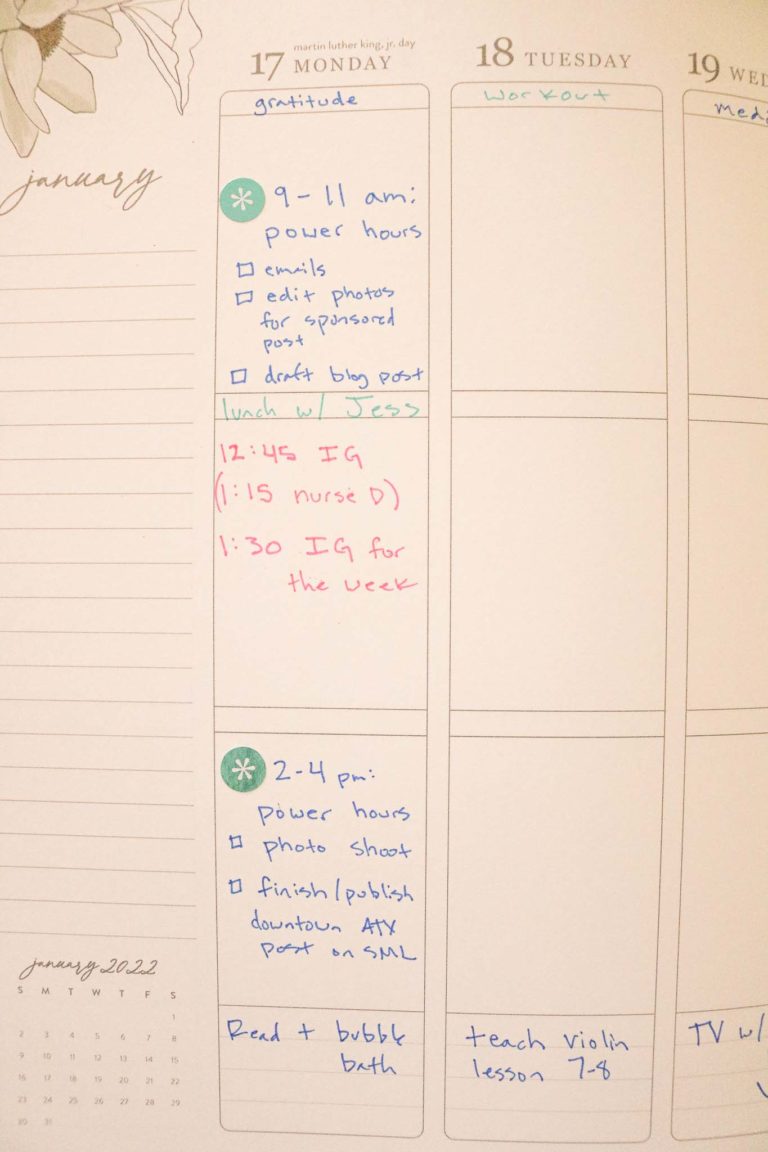 january
martin luther king, jr. day
17 MONDAY
gratitude
* 9-11 am:
power hours
emails
edit photos
for sponsored
post
draft blog post
lunch w/ Jess
12:45 IG
(1:15 nurse D)
1:30 IG for
the week
* 2-4 pm:
power hours
photo shoot
finish/publish
downtown ATX
post on SML
Read + bubble
bath
18 TUESDAY
workout
teach violin
lesson 7-8
19 WED
medi
TV w/
january 2022
S M T W T F S
1
2 3 4 5 6 7 8
9 10 11 12 13 14 15
16 17 18 19 20 21 22
23 24 25 26 27 28 29
30 31